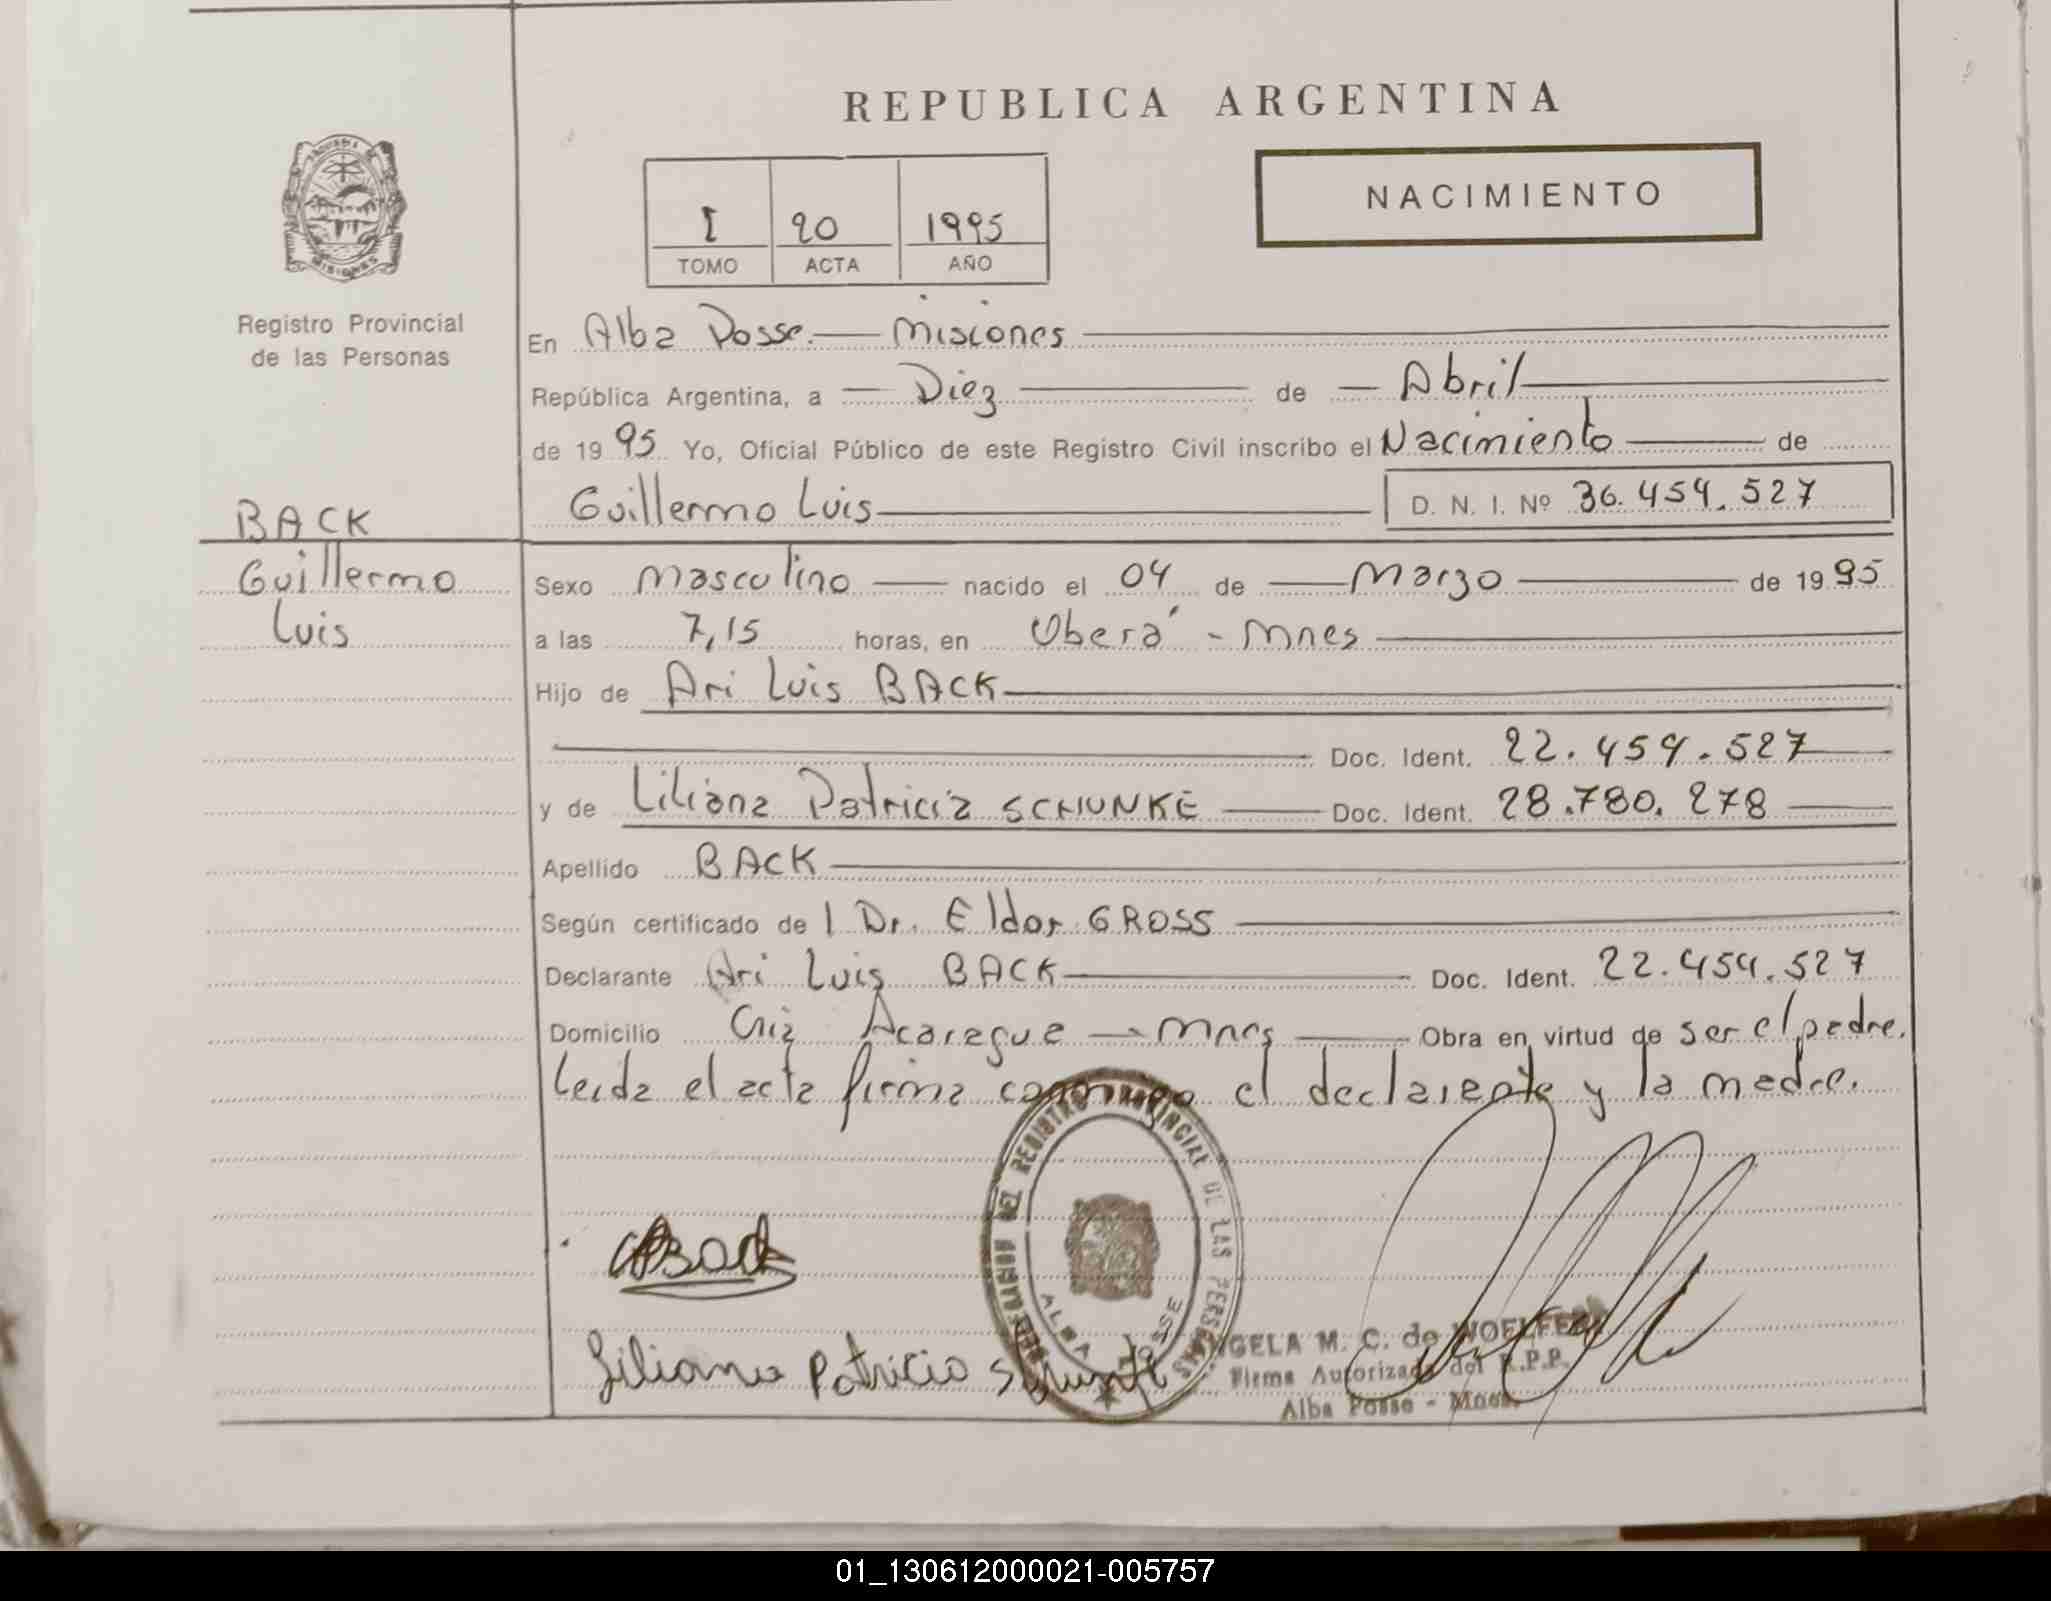 REPUBLICA ARGENTINA
NACIMIENTO
I 20 1995
TOMO ACTA AÑO
Registro Provincial
de las Personas
En Alba Posse. — Misiones
República Argentina, a — Diez — de — Abril
de 1995 Yo, Oficial Público de este Registro Civil inscribo el Nacimiento — de
Guillermo Luis — D. N. I. Nº 36.454.527
BACK
Guillermo
Luis
Sexo Masculino — nacido el 04 de — Marzo — de 1995
a las 7,15 horas, en Oberá - Mnes
Hijo de Ari Luis BACK
Doc. Ident. 22.454.527
y de Liliana Patricia SCHUNKE — Doc. Ident. 28.780.278
Apellido BACK
Según certificado de l Dr. Eldor GROSS
Declarante Ari Luis BACK — Doc. Ident. 22.454.527
Domicilio Acaragua — Mnes — Obra en virtud de ser el padre.
Leida el acta firma conmigo el declarante y la madre.
DELEGACION DEL REGISTRO PROVINCIAL DE LAS PERSONAS
ALBA POSSE
Back
Liliana Patricia Schunke
ANGELA M. C. de
Firma Autorizada del R.P.P.
Alba Posse - Mnes.
01_130612000021-005757